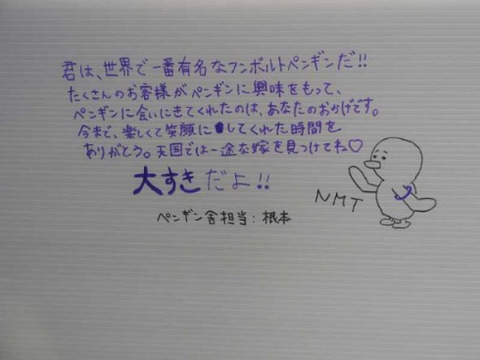 君は、世界で一番有名なフンボルトペンギンだ!!
たくさんのお客様がペンギンに興味をもって、
ペンギンに会いにきてくれたのは、あなたのおかげです。
今まで、楽しくて笑顔にしてくれた時間を
ありがとう。天国では一途な嫁を見つけてね♡
大すきだよ!!
NMT
ペンギン舎担当:根本